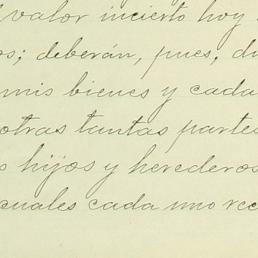 valor incierto hoy
os; deberán, pues, di
mis bienes y cada
otras tantas partes
s hijos y herederos
cuales cada uno rec